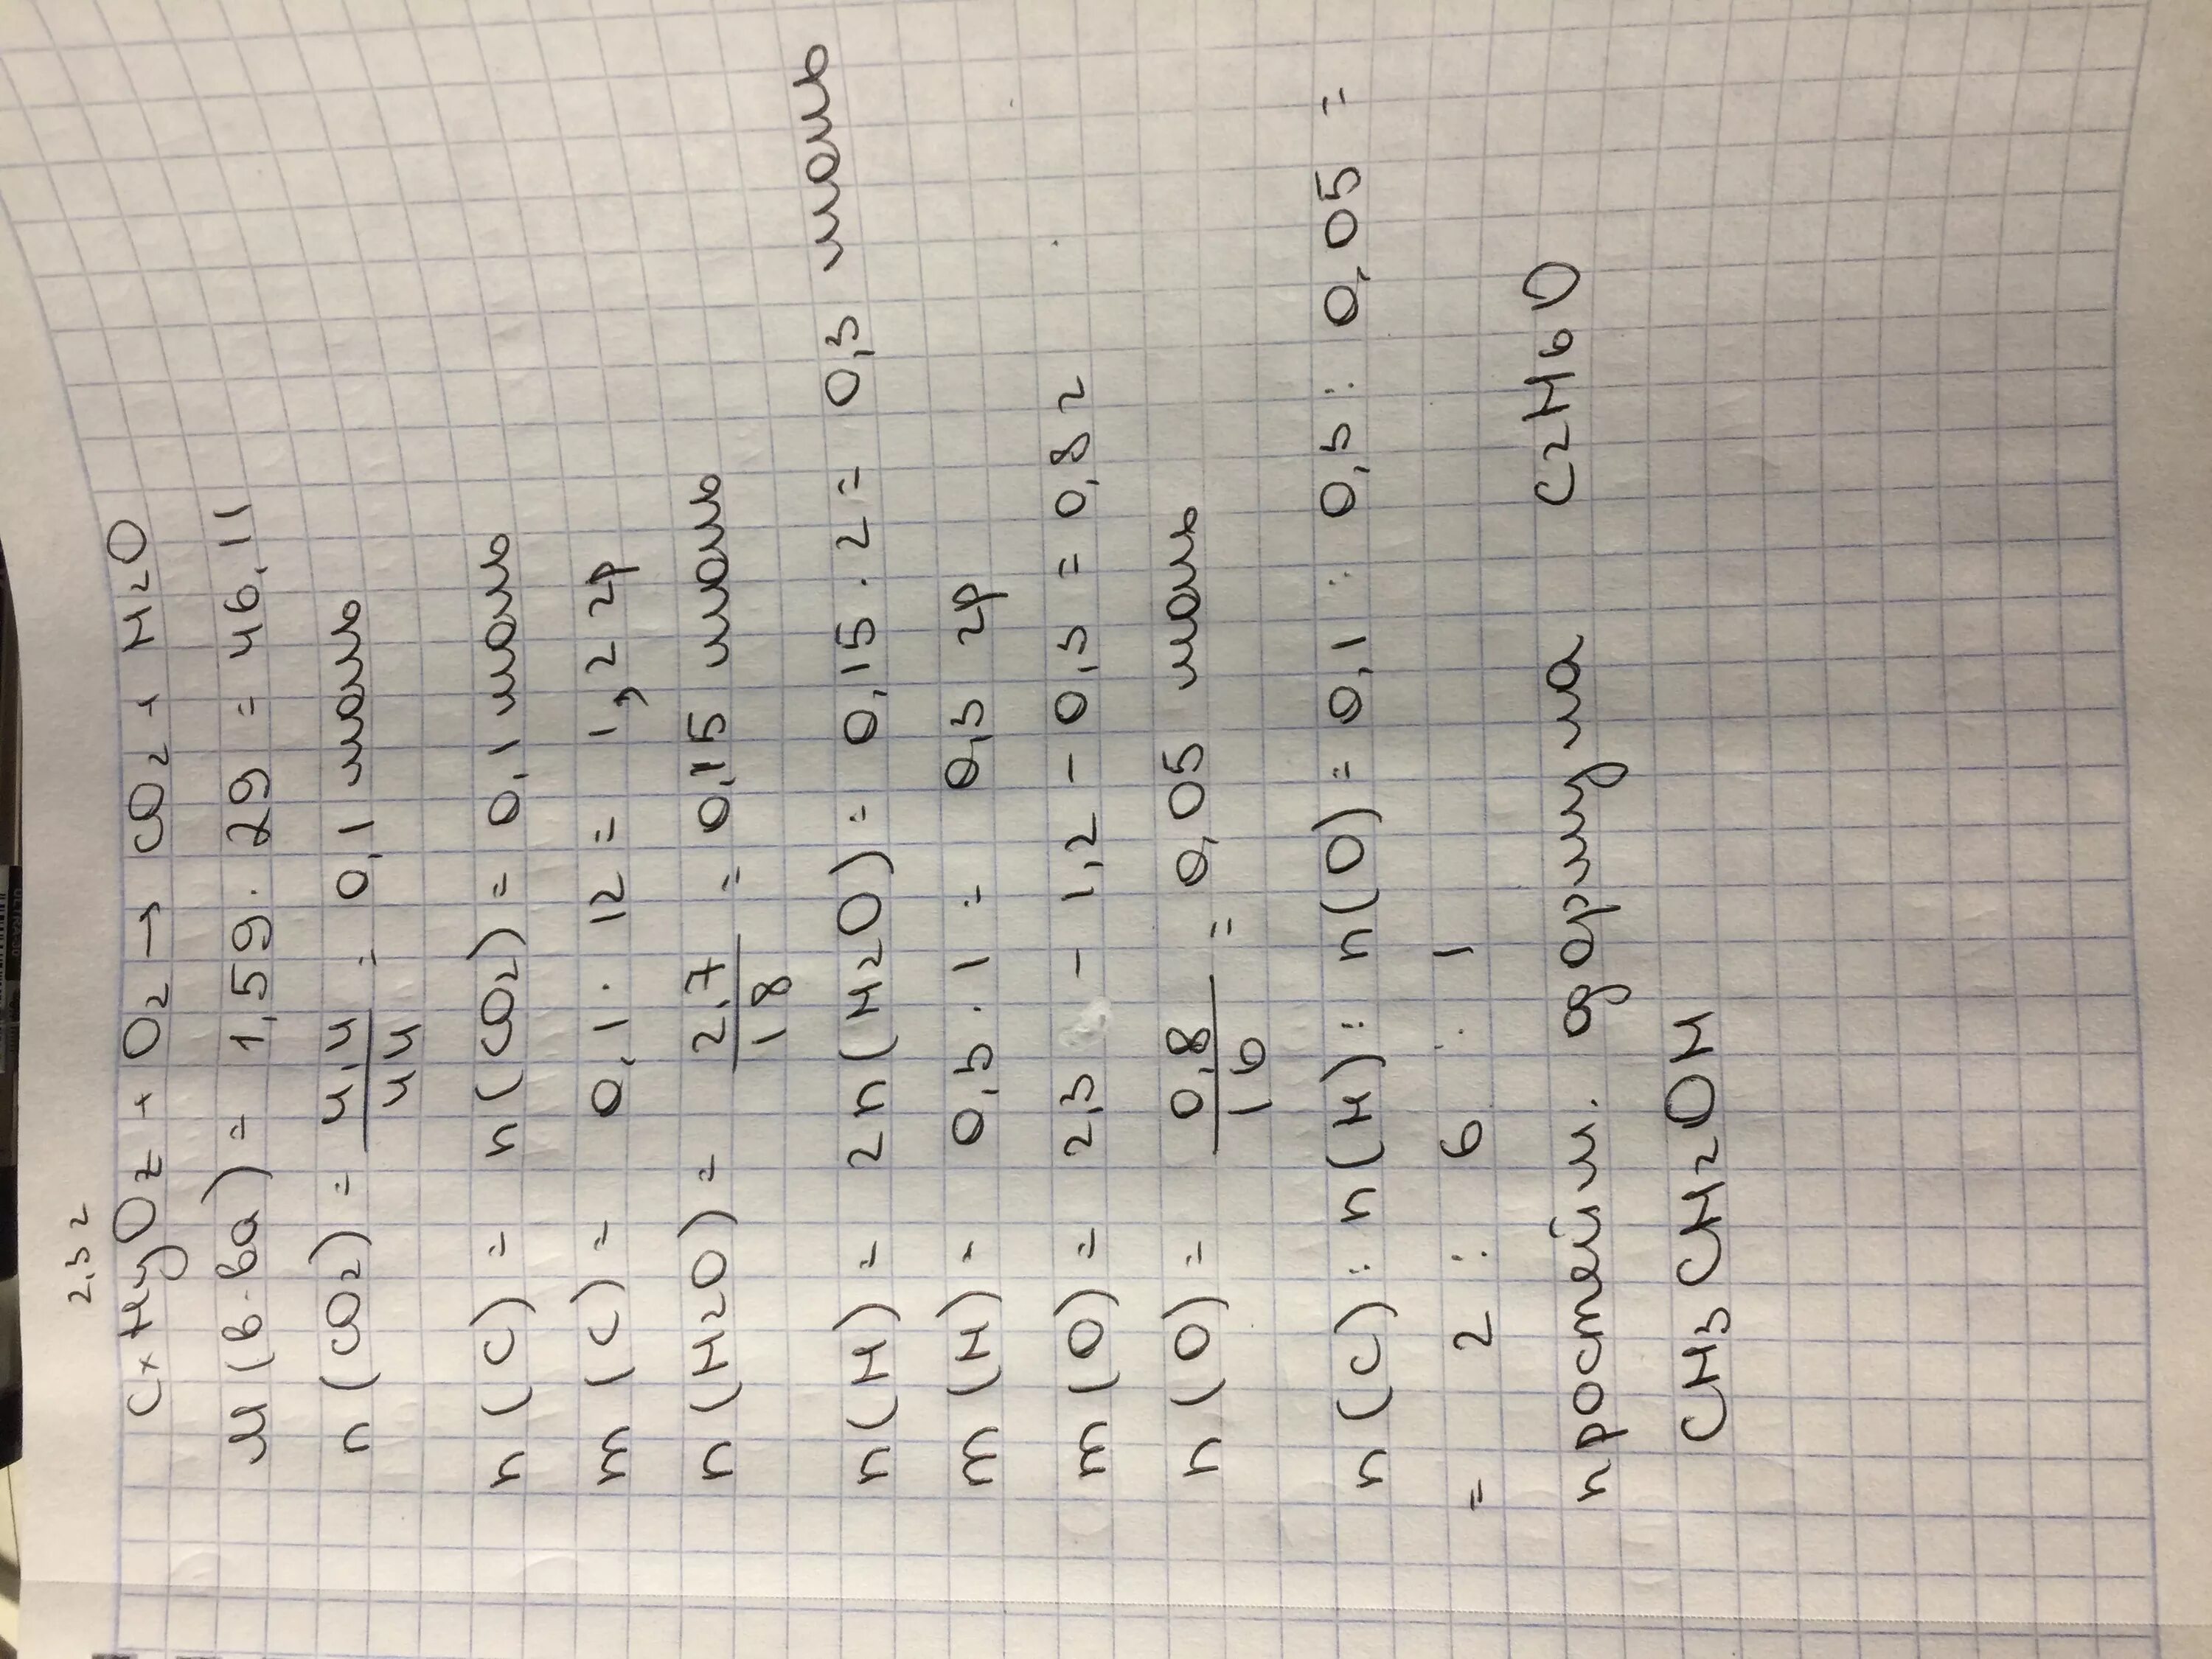 2,3 г
CxHyOz + O2 → CO2 + H2O
M (в-ва) = 1,59 · 29 = 46,11
n (CO2) = 4,4/44 = 0,1 моль
n (C) = n (CO2) = 0,1 моль
m (C) = 0,1 · 12 = 1,2 гр
n (H2O) = 2,7/18 = 0,15 моль
n (H) = 2n (H2O) = 0,15 · 2 = 0,3 моль
m (H) = 0,3 · 1 = 0,3 гр
m (O) = 2,3 - 1,2 - 0,3 = 0,8 г
n (O) = 0,8/16 = 0,05 моль
n (C) : n (H) : n (O) = 0,1 : 0,3 : 0,05 =
= 2 : 6 : 1
простейш. формула C2H6O
CH3CH2OH